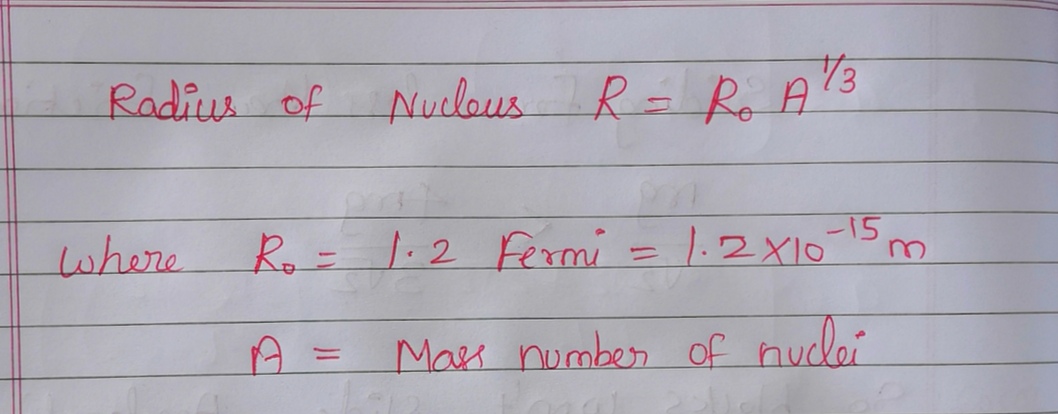 Radius of Nucleus R = R₀ A^1/3
where R₀ = 1.2 Fermi = 1.2×10^-15 m
A = Mass number of nuclei